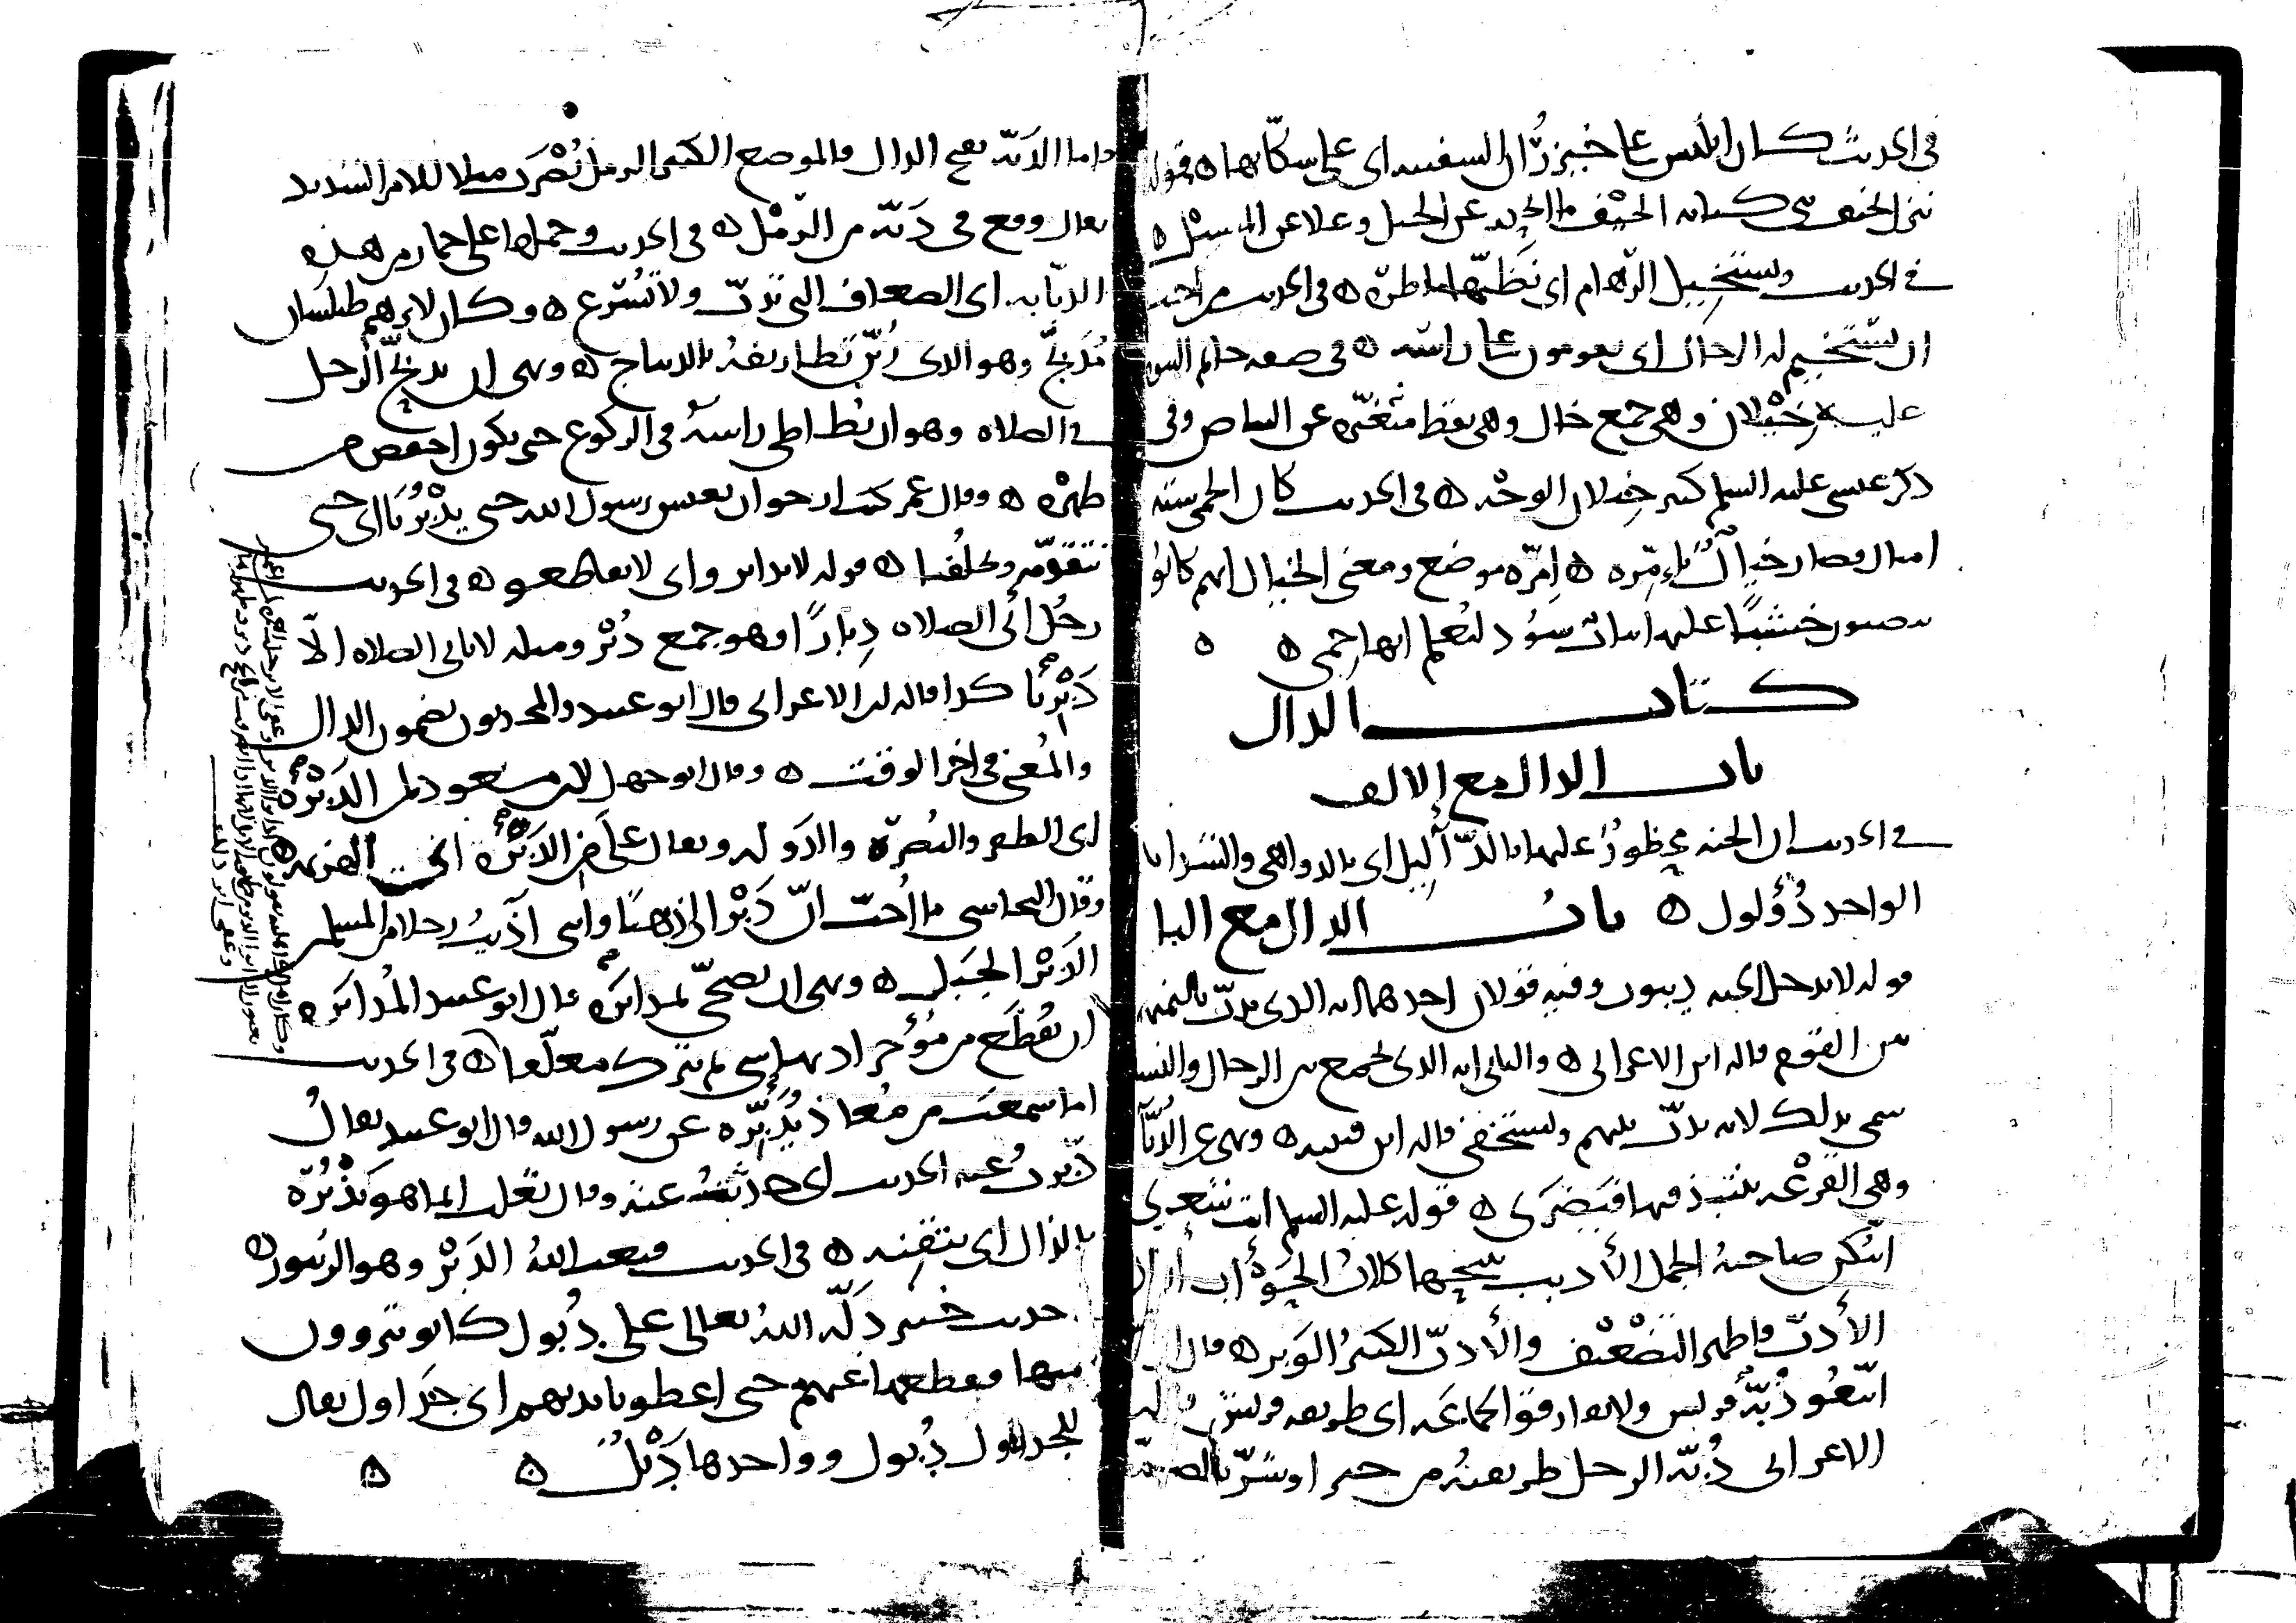 في الحديث كان ابليس على خيزران السفينة اى على سكانها ه قوله
نحن بخيف بنى كنانه الخيف ما انحدر عن الجبل وعلا عن المسيل ه
في الحديث ونستخيل الرهام اى نظنها ماطرة ه في الحديث من احب
ان يستخيم له الرجال اى يقومون على راسه ه في صفه خاتم النبوه
عليه خيلان وهى جمع خال وهى نقط متغيره عن البياض وفى
ذكر عيسى عليه السلم كثير خيلان الوجه ه في الحديث كان الحمى سته
اميال فصار خيال بامره ه امره موضع ومعنى الخيال انهم كانوا
ينصبون خشبا عليها ثياب سود ليعلم انها حمى ه ه
كتاب الدال
باب الدال مع الالف
في الحديث ان الجنه محظور عليها بالدآليل اى بالدواهى والشدايد
الواحد دؤلول ه باب الدال مع البا
قوله لا يدخل الجنه ديبوب وفيه قولان احدهما انه الذى يدب بالنميمه
بين القوم قاله ابن الاعرابى ه والثانى انه الذى يجمع بين الرجال والنسا
سمى بذلك لانه يدب بينهم ويستخفى قاله ابن قتيبه ه ونهى عن الدبا
وهى القرعه ينتبذ فيها فيضرى ه قوله عليه السلم ليت شعرى
ايتكن صاحبه الجمل الأدبب تنبحها كلاب الحوأب اراد
الأدب فاظهر التضعيف والأدب الكثير الوبر ه قال ابن
اتبعو دبه قريش ولا تفارقوا الجماعه اى طريقه قريش قال ابن
الاعرابى دبه الرجل طريقته من خير او شر بالضم
واما الدبه بفتح الدال فالموضع الكثير الرمل يضرب مثلا للامر الشديد
يقال وقع فى دبه من الرمل ه في الحديث وحملها على حمار من هذه
الدبابه اى الضعاف التى تدب ولا تسرع ه وكان لابرهيم طيلسان
مدبج وهو الذى زين تطاريفه بالديباج ه ونهى ان يدبج الرجل
في الصلاه وهو ان يطاطى راسه في الركوع حتى يكون اخفض من
ظهره ه وقال عمر كنت ارجو ان يعيش رسول الله حتى يدبرنا اى حتى
نتقدمه ويخلفنا ه قوله لا تدابروا اى لا تقاطعوا ه في الحديث
رجل اتى الصلاه دبارا وهو جمع دبر ومثله لا ياتى الصلاه الا
دبريا كذا قاله ابن الاعرابى قال ابو عبيد والمحدثون يضمون الدال
والمعنى فى اخر الوقت ه وقال ابو جهل لابن مسعود لمن الدبره
اى الظفر والنصره والدوله ويقال على من الدبره اى الهزيمه ه
وقال النجاشى ما احب ان دبرا لى ذهبا وانى آذيت رجلا من المسلمين
الدبر الجبل ه ونهى ان يضحى بمدابره قال ابو عبيد المدابره
ان يقطع من مؤخر اذنها شى ثم يترك معلقا ه في الحديث
اما سمعت من معاذ يدبره عن رسول الله قال ابو عبيد يقال
دبرت عنه الحديث اى حدثت عنه وقال ثعلب انما هو يذبره
بالذال اى يتقنه ه في الحديث فبعث الله الدبر وهو الزنبور ه
حديث خيبر دله الله تعالى على دبول كانو يتروون
منها فقطعها عنهم حتى اعطو بايديهم اى جداول يقال
للجدول دبول وواحدها دبل ه ه